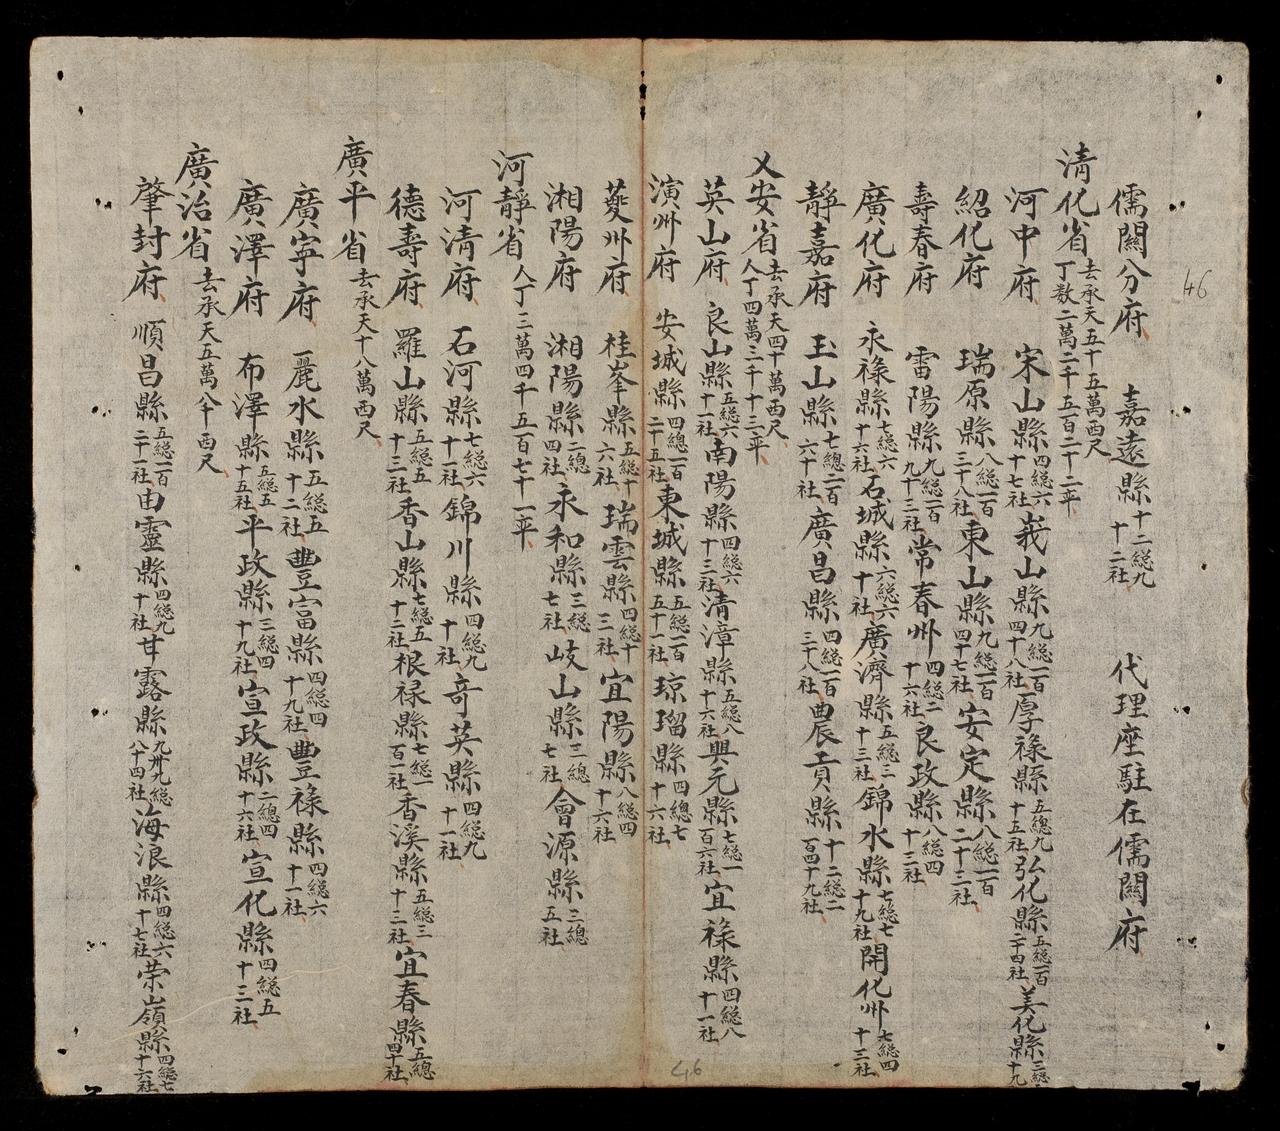 46
儒關分府 嘉遠縣十二総九十二社 代理座駐在儒關府
淸化省去承天五十五萬西尺丁数二萬二千五百二十二率
河中府 宋山縣四総六十七社峩山縣九総一百四十八社厚禄縣五総九十五社弘化縣五総一百二十四社美化縣三総十九
紹化府 瑞原縣八総一百三十八社東山縣九総一百四十七社安定縣八総一百二十三社
壽春府 雷陽縣九総一百九十三社常春州四総二十六社良政縣八総四十三社
廣化府 永祿縣七総六十六社石城縣六総六十社廣濟縣五総三十三社錦水縣七総七十九社開化州七総四十三社
靜嘉府 玉山縣七総二百六十社廣昌縣四総一百三十八社農貢縣十二総二百四十九社
乂安省去承天四十萬西尺人丁四萬三千十三率
英山府 良山縣五総六十一社南陽縣四総六十三社清漳縣五総八十六社興元縣七総一百六社宜祿縣四総八十一社
演州府 安城縣四総一百二十五社東城縣五総一百五十一社琼瑠縣四総七十六社
葵州府 桂峯縣五総十六社瑞雲縣四総十三社宜陽縣八総四十六社
湘陽府 湘陽縣二総四社永和縣三総七社岐山縣三総七社會源縣三総五社
河靜省人丁三萬四千五百七十一率
河清府 石河縣七総六十一社錦川縣四総九十社奇英縣四総九十一社
德壽府 羅山縣五総五十三社香山縣七総五十二社根禄縣七総一百一社香溪縣五総三十三社宜春縣五総四十社
廣平省去承天十八萬西尺
廣寜府 麗水縣五総五十二社豐富縣四総四十九社豐祿縣四総六十一社
廣澤府 布澤縣五総五十五社平政縣三総四十九社宣政縣二総四十六社宣化縣四総五十三社
廣治省去承天五萬八千西尺
肇封府 順昌縣五総一百二十二社由靈縣四総九十社甘露縣九州九総八十四社海浪縣四総六十七社荣嶺縣四総七十六社
46